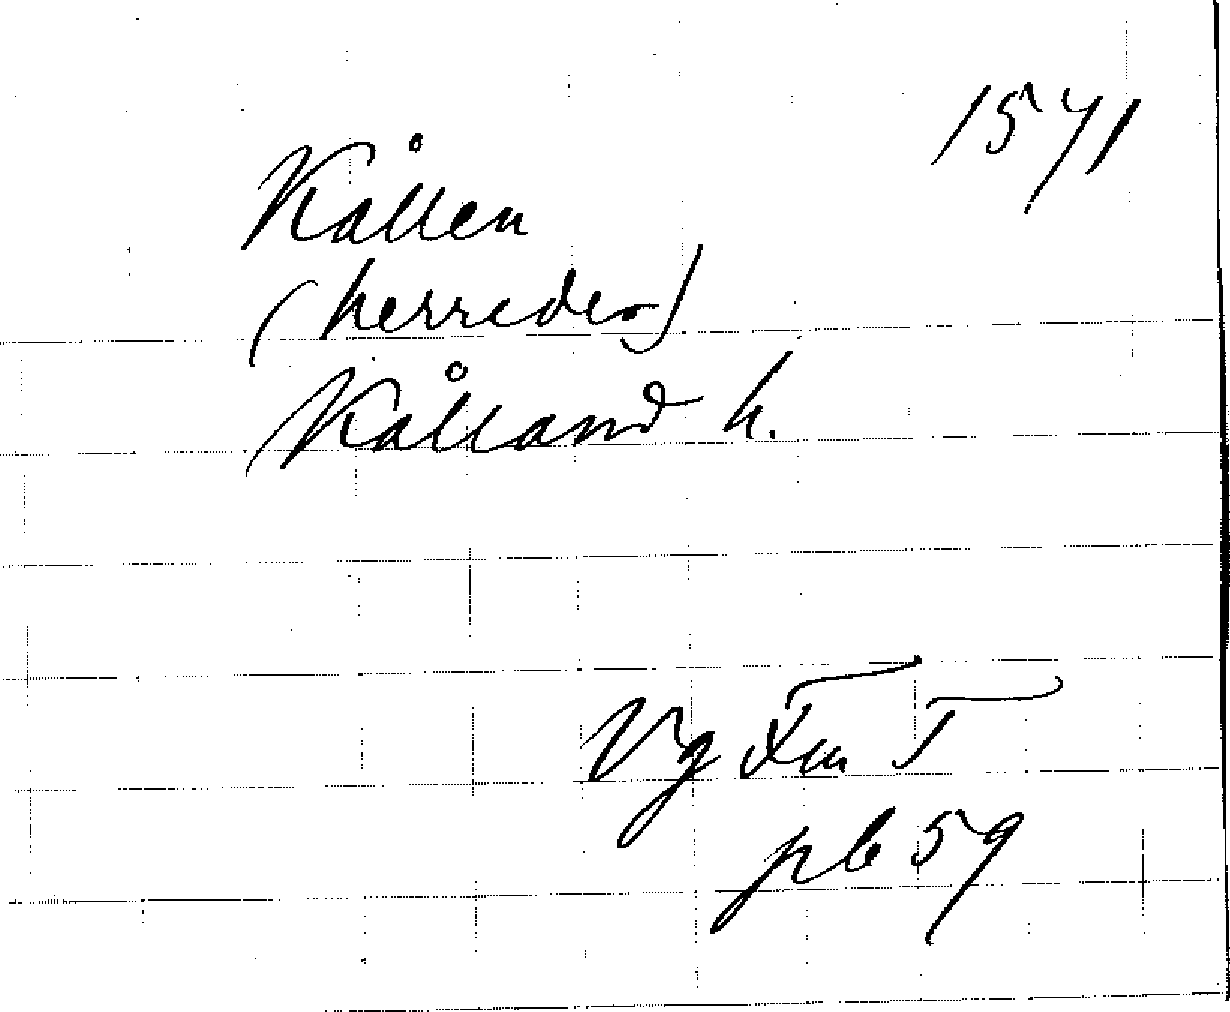 1571
Kållen
(herreder)
Kålland h.
Vg Fm I
pb 59